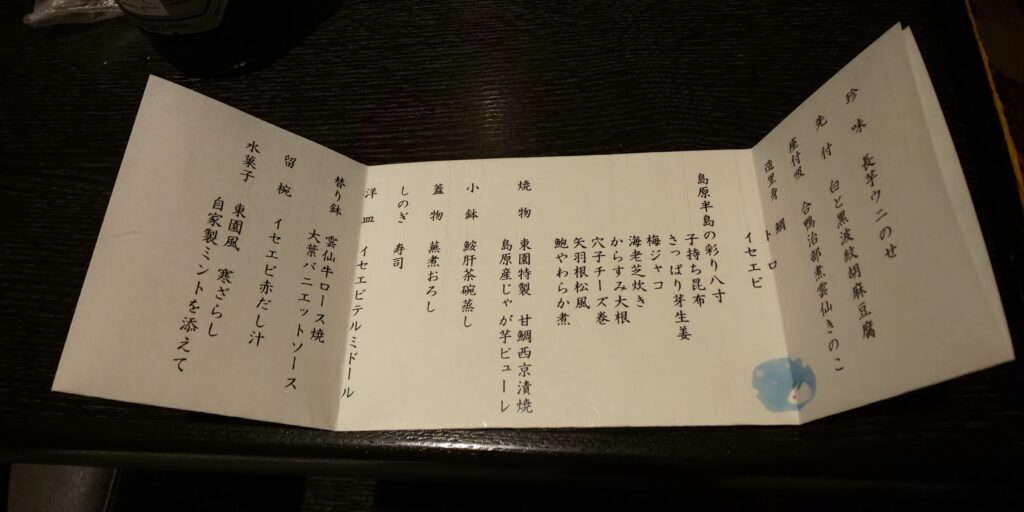 珍味 長芋ウニのせ
先付 白と黒波紋胡麻豆腐
座付吸 合鴨治部煮雲仙きのこ
造里身 鯛 トロ
イセエビ
島原半島の彩り八寸
子持ち昆布
さっぱり芽生姜
梅ジャコ
海老芝炊き
からすみ大根
穴子チーズ巻
矢羽根松風
鮑やわらか煮
焼物 東園特製 甘鯛西京漬焼
島原産じゃが芋ピューレ
小鉢 鮟肝茶碗蒸し
蓋物 蕪煮おろし
しのぎ 寿司
洋皿 イセエビテルミドール
替り鉢 雲仙牛ロース焼
大葉バニエットソース
留椀 イセエビ赤だし汁
水菓子 東園風 寒ざらし
自家製ミントを添えて